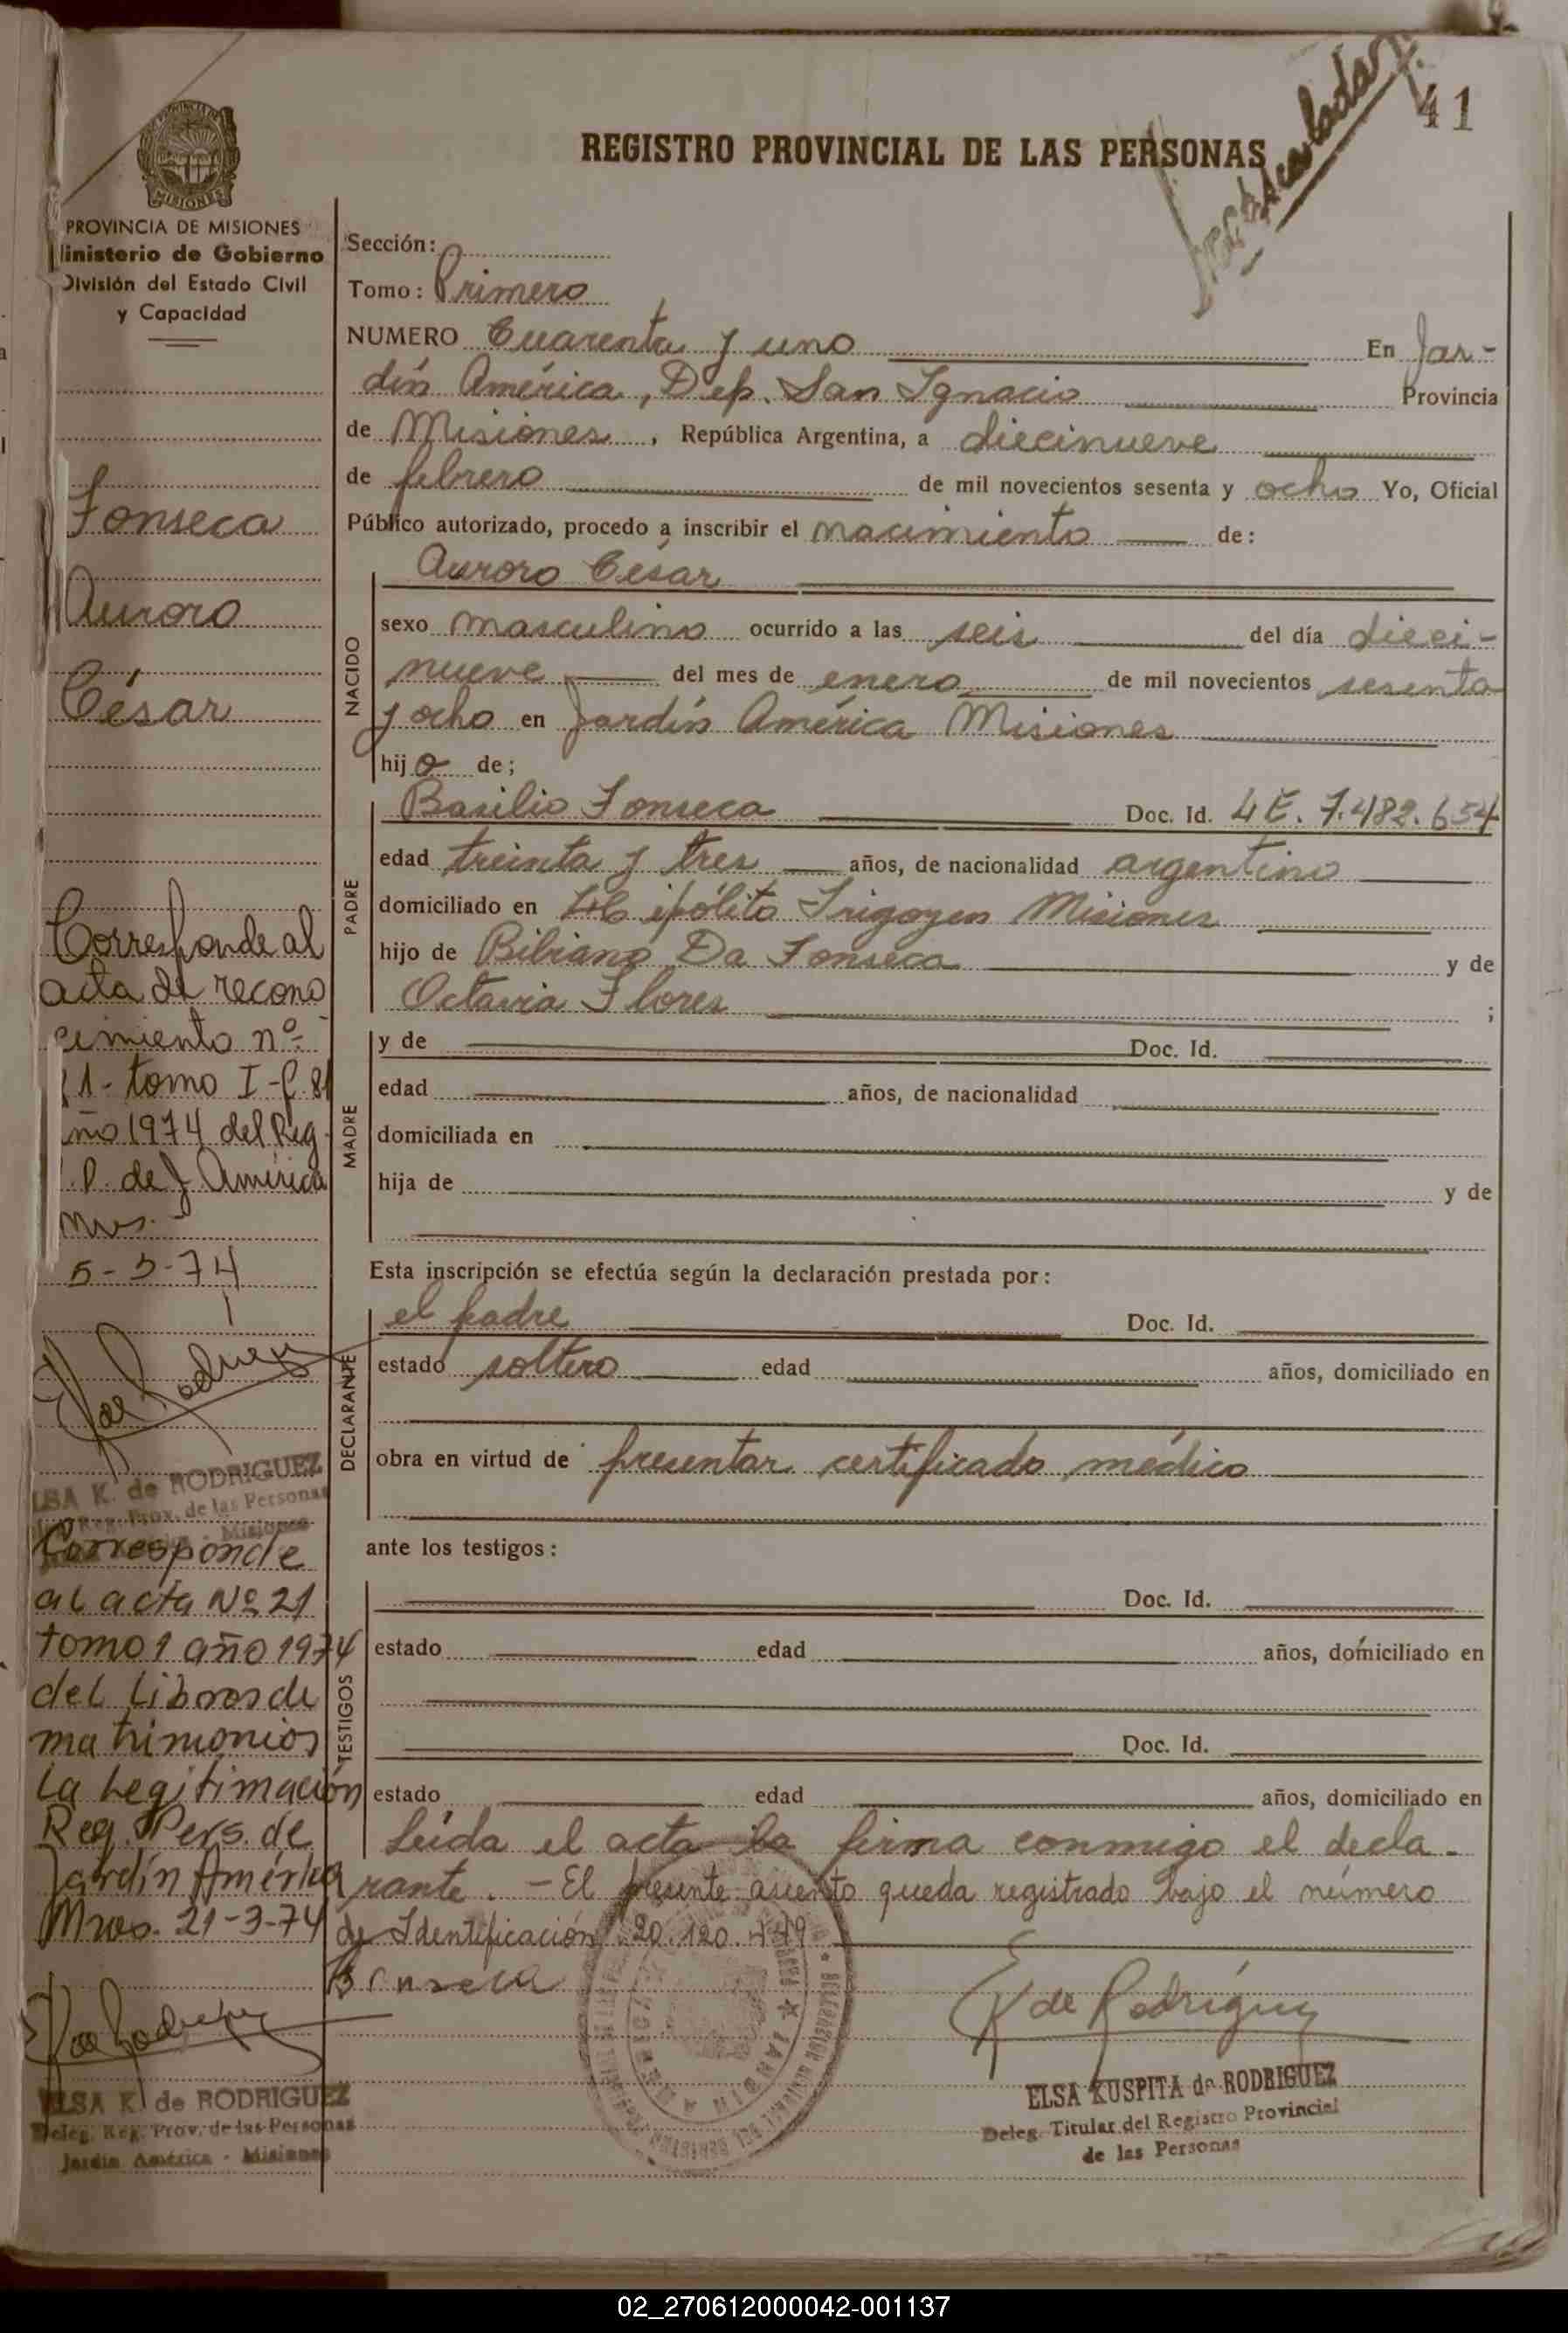 41
REGISTRO PROVINCIAL DE LAS PERSONAS
MISIONES
PROVINCIA DE MISIONES
Ministerio de Gobierno
División del Estado Civil
y Capacidad
Fonseca
Auroro
César
Corresponde al
acta de recono
cimiento nº
1- tomo I - f. 81
1974 del Reg.
P. de J. América
Mns.
5-3-74
ELSA K. de RODRIGUEZ
Reg. Prov. de las Personas
Misiones
Corresponde
al acta Nº 21
tomo 1 año 1974
del Libros de
matrimonios
La Legitimación
Reg. Pers. de
Jardín América
Mnes. 21-3-74
ELSA K. de RODRIGUEZ
Deleg. Reg. Prov. de las Personas
Jardín América - Misiones
Sección:
Tomo: Primero
NUMERO Cuarenta y uno En Jar-
dín América, Dep. San Ignacio Provincia
de Misiones, República Argentina, a diecinueve
de febrero de mil novecientos sesenta y ocho Yo, Oficial
Público autorizado, procedo a inscribir el nacimiento de:
Auroro César
NACIDO
sexo masculino ocurrido a las seis del día dieci-
nueve del mes de enero de mil novecientos sesenta
y ocho en Jardín América Misiones
hijo de;
PADRE
Basilio Fonseca Doc. Id. L E. 7.482.654
edad treinta y tres años, de nacionalidad argentino
domiciliado en Hipólito Irigoyen Misiones
hijo de Bibiano Da Fonseca y de
Octavia Flores ;
MADRE
y de Doc. Id.
edad años, de nacionalidad
domiciliada en
hija de y de
Esta inscripción se efectúa según la declaración prestada por:
DECLARANTE
el padre Doc. Id.
estado soltero edad años, domiciliado en
obra en virtud de presentar certificado médico
ante los testigos:
TESTIGOS
Doc. Id.
estado edad años, domiciliado en
Doc. Id.
estado edad años, domiciliado en
Leída el acta la firma conmigo el decla-
rante. - El presente asiento queda registrado bajo el número
de Identificación 20.120.449
E K de Rodríguez
ELSA KUSPITA de RODRIGUEZ
Deleg. Titular del Registro Provincial
de las Personas
JARDIN AMERICA
02_270612000042-001137